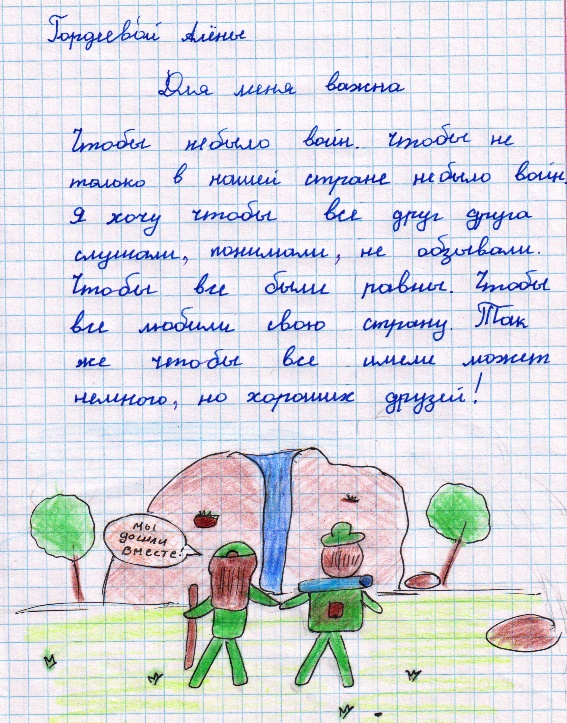 Гордеевой Алёны
Для меня важна
Чтобы небыло войн. Чтобы не
только в нашей стране небыло войн.
Я хочу чтобы все друг друга
слушали, понимали, не обзывали.
Чтобы все были равны. Чтобы
все любили свою страну. Так
же чтобы все имели может
немного, но хороших друзей!
мы
дошли
вместе!